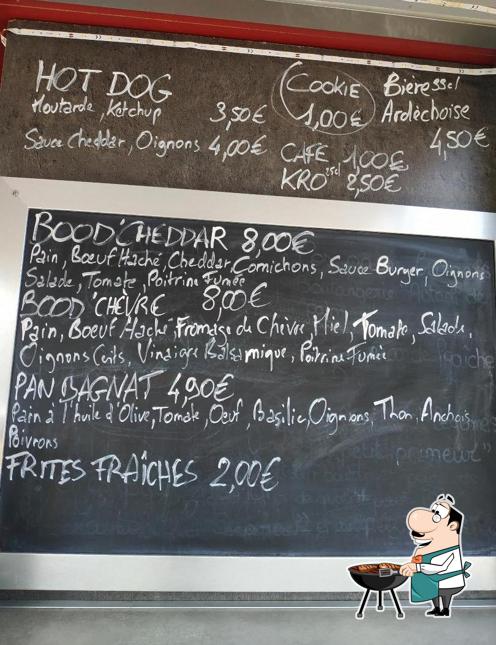 HOT DOG
Moutarde, Ketchup 3,50€
Sauce Cheddar, Oignons 4,00€
COOKIE
1,00€
Bière 33cl
Ardèchoise
4,50€
CAFE 1,00€
KRO 25cl 2,50€
BOOD'CHEDDAR 8,00€
Pain, Bœuf Haché Cheddar, Cornichons, Sauce Burger, Oignons
Salade, Tomate, Poitrine Fumée
BOOD'CHÈVRE 8,00€
Pain, Boeuf Haché Fromage de Chèvre, Miel, Tomate, Salade,
Oignons Cuits, Vinaigre Balsamique, Poitrine Fumée
PAN BAGNAT 4,90€
Pain à l'huile d'Olive, Tomate, Oeuf, Basilic, Oignons, Thon, Anchois
Poivrons
FRITES FRAÎCHES 2,00€